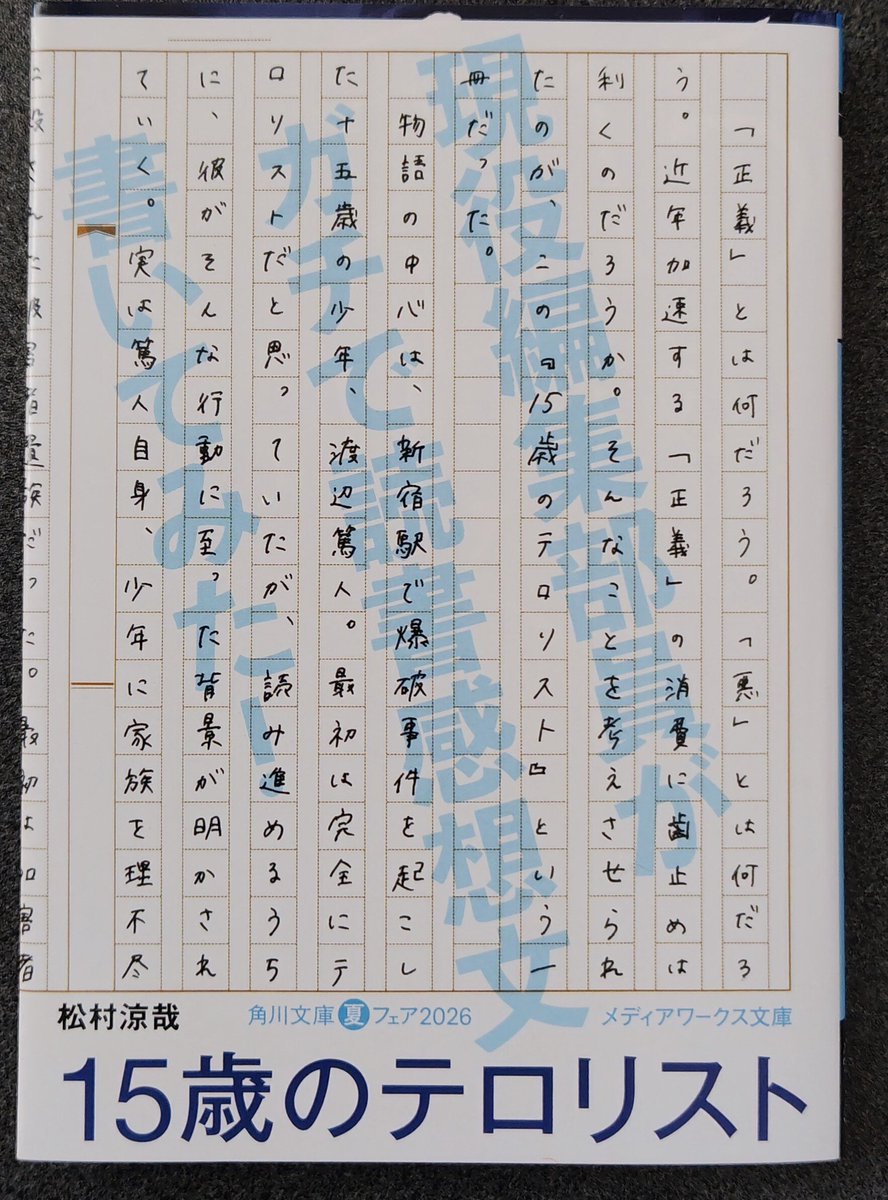 現役編集部員が
ガチで読書感想文
書いてみた！
「正義」とは何だろう。「悪」とは何だろ
う。近年加速する「正義」の消費に歯止めは
利くのだろうか。そんなことを考えさせられ
たのが、この『15歳のテロリスト』という一
冊だった。
物語の中心は、新宿駅で爆破事件を起こし
た十五歳の少年、渡辺篤人。最初は完全にテ
ロリストだと思っていたが、読み進めるうち
に、彼がそんな行動に至った背景が明かされ
ていく。実は篤人自身、少年に家族を理不尽
に殺された被害者遺族だった。最初は加害者
松村涼哉
角川文庫夏フェア2026
メディアワークス文庫
15歳のテロリスト